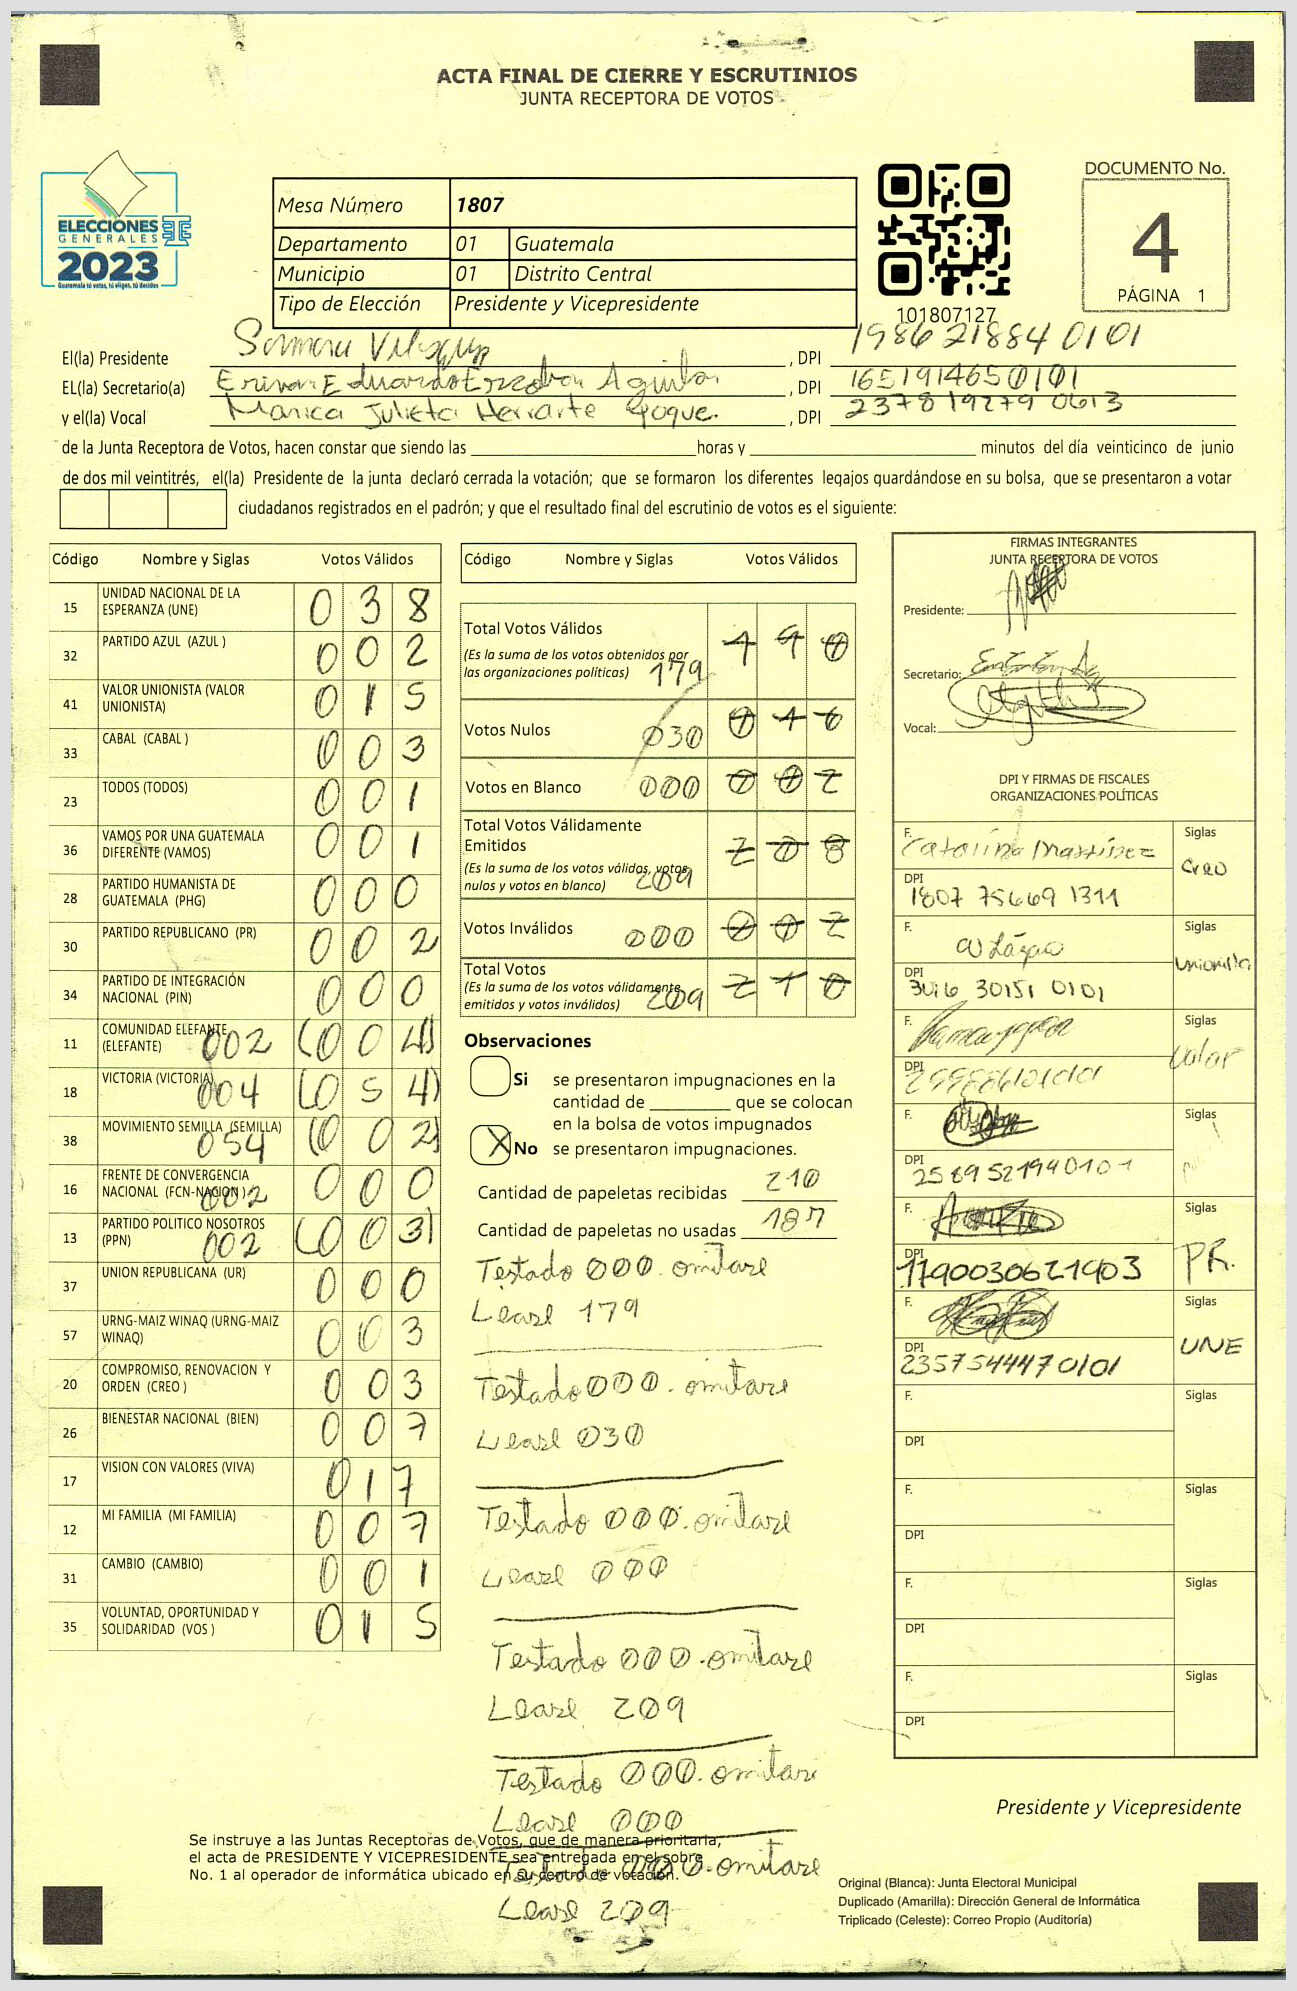 ACTA FINAL DE CIERRE Y ESCRUTINIOS
JUNTA RECEPTORA DE VOTOS
ELECCIONES
GENERALES
2023
Guatemala tú votas, tú eliges, tú decides
Mesa Número 1807
Departamento 01 Guatemala
Municipio 01 Distrito Central
Tipo de Elección Presidente y Vicepresidente
101807127
DOCUMENTO No.
4
PÁGINA 1
El(la) Presidente , DPI 1986 21884 0101
EL(la) Secretario(a) Eduardo Aguilar , DPI 1651914650101
y el(la) Vocal Marica Julieta Herrarte , DPI 2378 19279 0613
de la Junta Receptora de Votos, hacen constar que siendo las horas y minutos del día veinticinco de junio
de dos mil veintitrés, el(la) Presidente de la junta declaró cerrada la votación; que se formaron los diferentes legajos guardándose en su bolsa, que se presentaron a votar
ciudadanos registrados en el padrón; y que el resultado final del escrutinio de votos es el siguiente:
Código Nombre y Siglas Votos Válidos
15 UNIDAD NACIONAL DE LA ESPERANZA (UNE) 038
32 PARTIDO AZUL (AZUL ) 002
41 VALOR UNIONISTA (VALOR UNIONISTA) 015
33 CABAL (CABAL ) 003
23 TODOS (TODOS) 001
36 VAMOS POR UNA GUATEMALA DIFERENTE (VAMOS) 001
28 PARTIDO HUMANISTA DE GUATEMALA (PHG) 000
30 PARTIDO REPUBLICANO (PR) 002
34 PARTIDO DE INTEGRACIÓN NACIONAL (PIN) 000
11 COMUNIDAD ELEFANTE (ELEFANTE) 002 (004)
18 VICTORIA (VICTORIA) 004 (054)
38 MOVIMIENTO SEMILLA (SEMILLA) 054 (002)
16 FRENTE DE CONVERGENCIA NACIONAL (FCN-NACION ) 002 000
13 PARTIDO POLITICO NOSOTROS (PPN) 002 (003)
37 UNION REPUBLICANA (UR) 000
57 URNG-MAIZ WINAQ (URNG-MAIZ WINAQ) 003
20 COMPROMISO, RENOVACION Y ORDEN (CREO ) 003
26 BIENESTAR NACIONAL (BIEN) 007
17 VISION CON VALORES (VIVA) 017
12 MI FAMILIA (MI FAMILIA) 007
31 CAMBIO (CAMBIO) 001
35 VOLUNTAD, OPORTUNIDAD Y SOLIDARIDAD (VOS ) 015
Código Nombre y Siglas Votos Válidos
Total Votos Válidos
(Es la suma de los votos obtenidos por
las organizaciones políticas) 179
Votos Nulos 030
Votos en Blanco 000 002
Total Votos Válidamente
Emitidos 208
(Es la suma de los votos válidos, votos
nulos y votos en blanco) 209
Votos Inválidos 000 002
Total Votos
(Es la suma de los votos válidamente
emitidos y votos inválidos) 209 210
Observaciones
Si se presentaron impugnaciones en la
cantidad de que se colocan
en la bolsa de votos impugnados
X No se presentaron impugnaciones.
Cantidad de papeletas recibidas 210
Cantidad de papeletas no usadas 187
Testado 000. omitase
Lease 179
Testado 000. omitase
Lease 030
Testado 000. omitase
Lease 000
Testado 000. omitase
Lease 209
Testado 000. omitase
Lease 000
Testado 000. omitase
Lease 209
FIRMAS INTEGRANTES
JUNTA RECEPTORA DE VOTOS
Presidente:
Secretario:
Vocal:
DPI Y FIRMAS DE FISCALES
ORGANIZACIONES POLÍTICAS
F. Catalina Martínez Siglas Creo
DPI 1807 75669 1311
F. Siglas Unionista
DPI 3016 30151 0101
F. Siglas Valor
DPI
F. Siglas
DPI 2589521940101
F. Siglas PR.
DPI 1790030621903
F. Siglas UNE
DPI 2357544470101
F. Siglas
DPI
F. Siglas
DPI
F. Siglas
DPI
F. Siglas
DPI
Presidente y Vicepresidente
Se instruye a las Juntas Receptoras de Votos, que de manera prioritaria,
el acta de PRESIDENTE Y VICEPRESIDENTE sea entregada en el sobre
No. 1 al operador de informática ubicado en su centro de votación.
Original (Blanca): Junta Electoral Municipal
Duplicado (Amarilla): Dirección General de Informática
Triplicado (Celeste): Correo Propio (Auditoría)